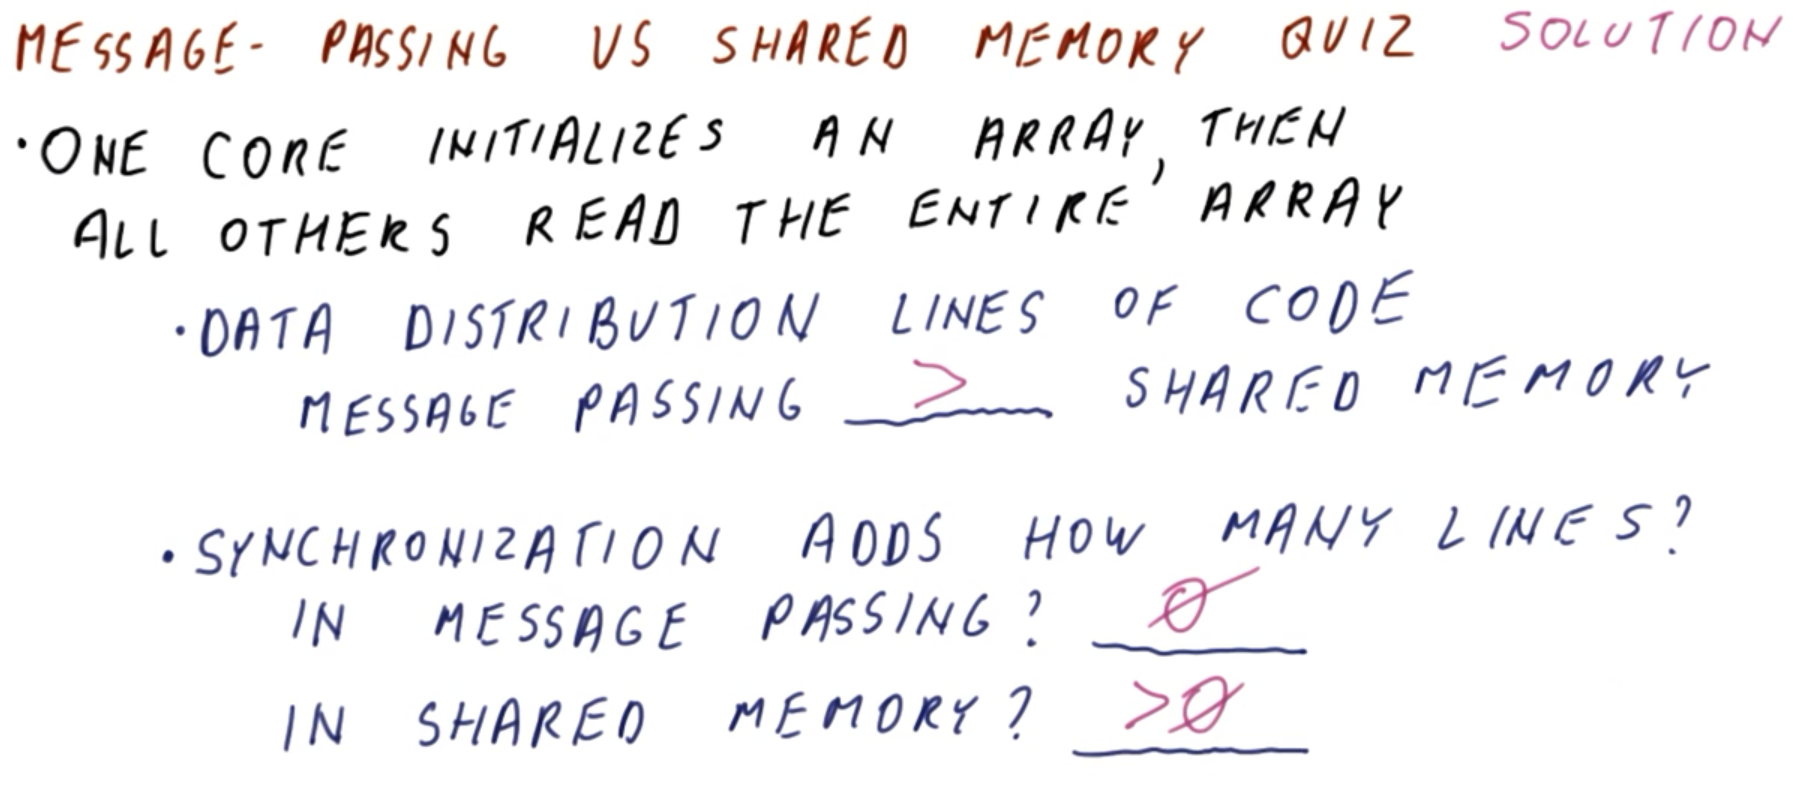 MESSAGE- PASSING VS SHARED MEMORY QUIZ SOLUTION
·ONE CORE INITIALIZES AN ARRAY, THEN
ALL OTHERS READ THE ENTIRE ARRAY
·DATA DISTRIBUTION LINES OF CODE
MESSAGE PASSING > SHARED MEMORY
·SYNCHRONIZATION ADDS HOW MANY LINES?
IN MESSAGE PASSING? 0
IN SHARED MEMORY? >0